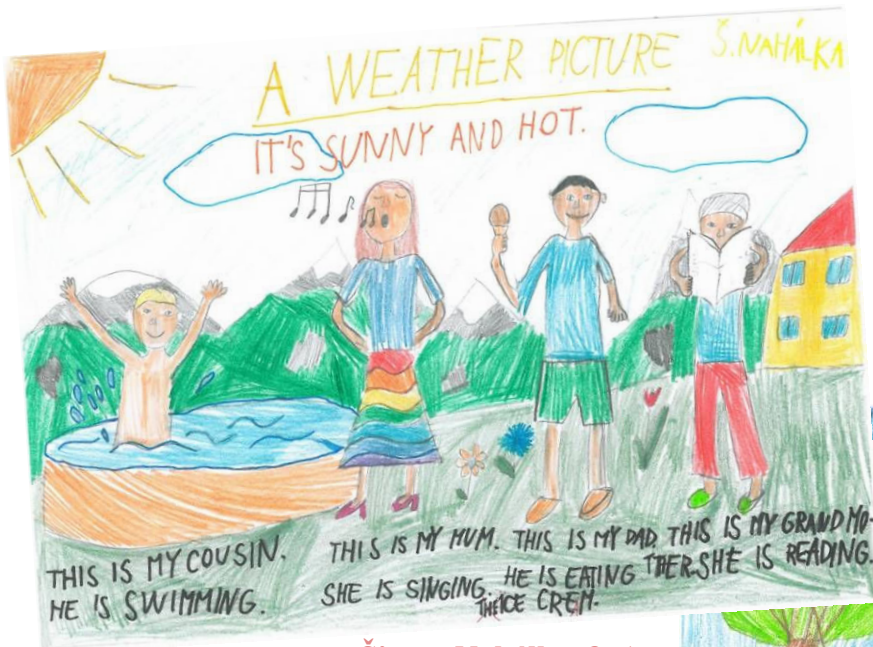 A WEATHER PICTURE
Š. NAHÁLKA
IT'S SUNNY AND HOT.
THIS IS MY COUSIN.
HE IS SWIMMING.
THIS IS MY MUM.
SHE IS SINGING.
THIS IS MY DAD.
HE IS EATING
ICE CREM.
THIS IS MY GRANDMO-
THER. SHE IS READING.